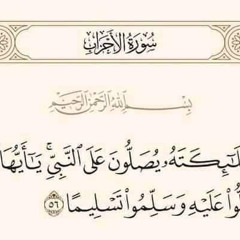 سُورَةُ الأَحْزَابِ
بِسْمِ اللَّهِ الرَّحْمَٰنِ الرَّحِيمِ
لَٰٓئِكَتَهُۥ يُصَلُّونَ عَلَى ٱلنَّبِيِّۚ يَٰٓأَيُّهَا
لُّوا۟ عَلَيْهِ وَسَلِّمُوا۟ تَسْلِيمًا ٥٦